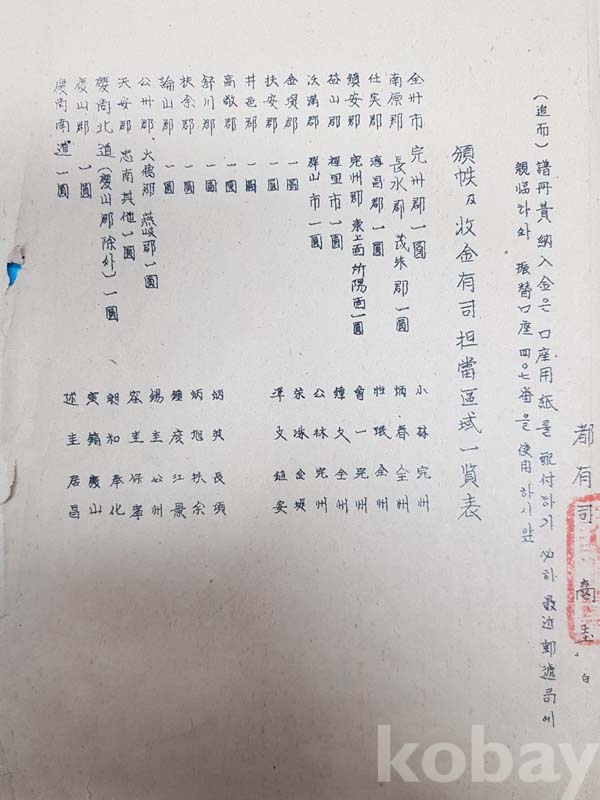 都有司 商圭 白
(追而) 譜冊費納入金은 口座用紙를 配付하기 必히 最近 郵遞局에
親臨하와 振替口座 四〇七番을 使用하시압
頒帙及收金有司担當區域一覧表
全州市 完州郡一圓 小林 完州
南原郡 長水郡 茂朱郡一圓 炳春 全州
任実郡 淳昌郡一圓 性珉 全州
鎭安郡 完州郡 東上面 所陽面一圓 會一 完州
益山郡 裡里市一圓 文 全州
沃溝郡 群山市一圓 公林 完州
金堤郡 一圓 洙 金堤
扶安郡 一圓 準文 鎭安
井邑郡 一圓
高敞郡 一圓
舒川郡 一圓 炳英 長項
扶余郡 一圓 炳旭 扶余
論山郡 一圓 鍾彦 江景
公州郡 大德郡 燕岐郡一圓 錫圭 公州
天安郡 忠南其他一圓 容圭 保寧
慶尙北道(慶山郡除外)一圓 和 奉化
慶山郡 一圓 寅鎬 慶山
慶尙南道 一圓 述圭 居昌
kobay